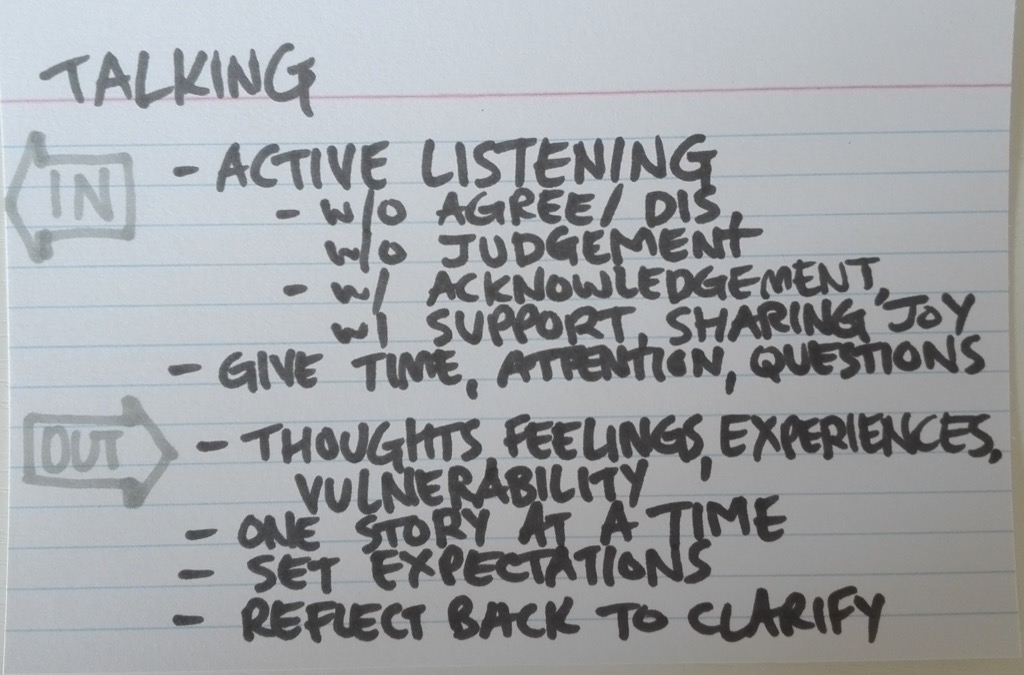 TALKING
IN
- ACTIVE LISTENING
- W/O AGREE/DIS,
W/O JUDGEMENT
- W/ ACKNOWLEDGEMENT,
W/ SUPPORT, SHARING JOY
- GIVE TIME, ATTENTION, QUESTIONS
OUT
- THOUGHTS FEELINGS, EXPERIENCES,
VULNERABILITY
- ONE STORY AT A TIME
- SET EXPECTATIONS
- REFLECT BACK TO CLARIFY